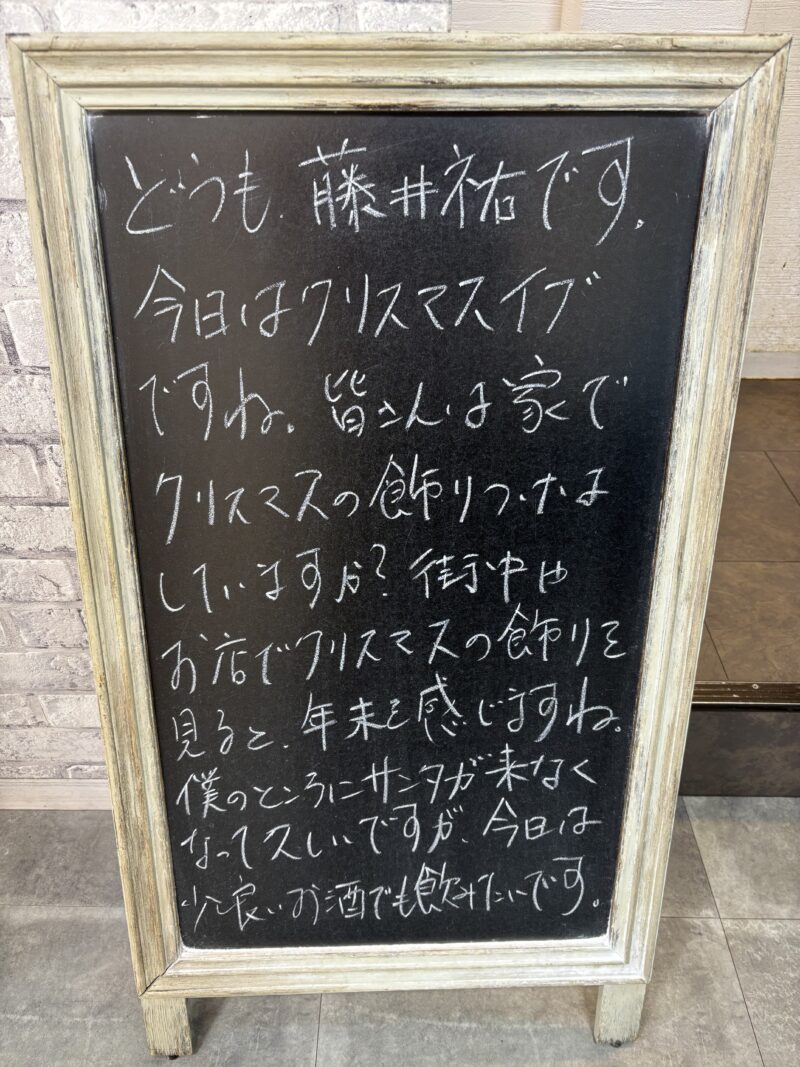 どうも、藤井祐です。
今日はクリスマスイブ
ですね。皆さんは家で
クリスマスの飾りつけは
していますか?街中や
お店でクリスマスの飾りを
見ると、年末を感じますね。
僕のところにサンタが来なく
なって久しいですが、今日は
少し良いお酒でも飲みたいです。